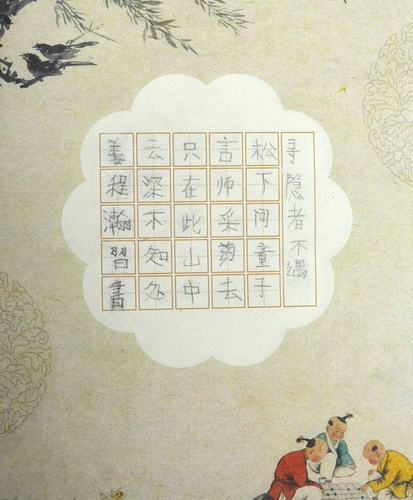 寻隐者不遇
松下问童子
言师采药去
只在此山中
云深不知处
姜程瀚習書